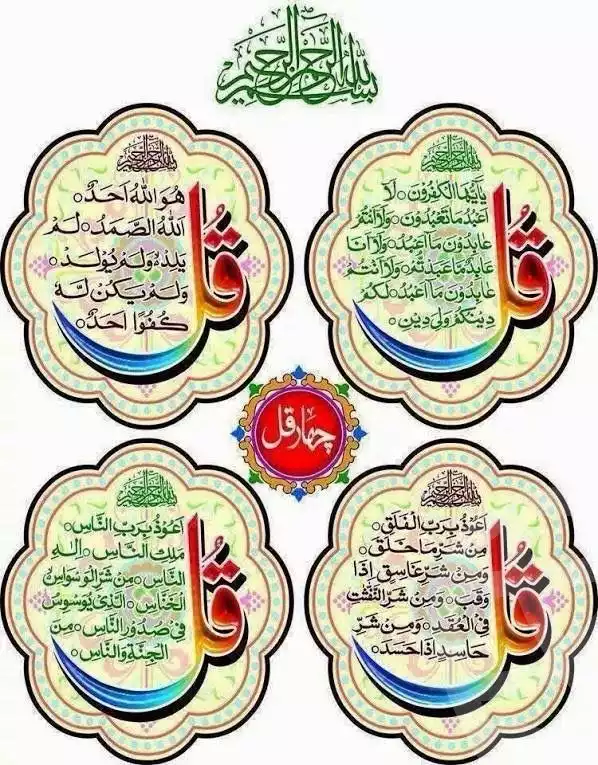 بسم الله الرحمن الرحيم
بسم الله الرحمن الرحيم
قُل
يٰاَيُّهَا الْكٰفِرُوْنَ ○ لَاۤ
اَعْبُدُ مَا تَعْبُدُوْنَ ○ وَلَاۤ اَنْتُمْ
عَابِدُوْنَ مَاۤ اَعْبُدُ ○ وَلَاۤ اَنَا
عَابِدٌ مَّا عَبَدْتُّمْ ○ وَلَاۤ اَنْتُمْ
عَابِدُوْنَ مَاۤ اَعْبُدُ ○ لَكُمْ
دِيْنُكُمْ وَلِيَ دِيْنِ ○
بسم الله الرحمن الرحيم
قُل
هُوَ اللهُ اَحَدٌ ○
اَللهُ الصَّمَدُ ○ لَمْ
يَلِدْ ○ وَلَمْ يُوْلَدْ ○
وَلَمْ يَكُنْ لَّهٗ
كُفُوًا اَحَدٌ ○
چہار قل
بسم الله الرحمن الرحيم
قُل
اَعُوْذُ بِرَبِّ الْفَلَقِ ○
مِنْ شَرِّ مَا خَلَقَ ○
وَمِنْ شَرِّ غَاسِقٍ اِذَا
وَقَبَ ○ وَمِنْ شَرِّ النَّفّٰثٰتِ
فِي الْعُقَدِ ○ وَمِنْ شَرِّ
حَاسِدٍ اِذَا حَسَدَ ○
بسم الله الرحمن الرحيم
قُل
اَعُوْذُ بِرَبِّ النَّاسِ ○
مَلِكِ النَّاسِ ○ اِلٰهِ
النَّاسِ ○ مِنْ شَرِّ الْوَسْوَاسِ
الْخَنَّاسِ ○ الَّذِيْ يُوَسْوِسُ
فِيْ صُدُوْرِ النَّاسِ ○ مِنَ
الْجِنَّةِ وَالنَّاسِ ○